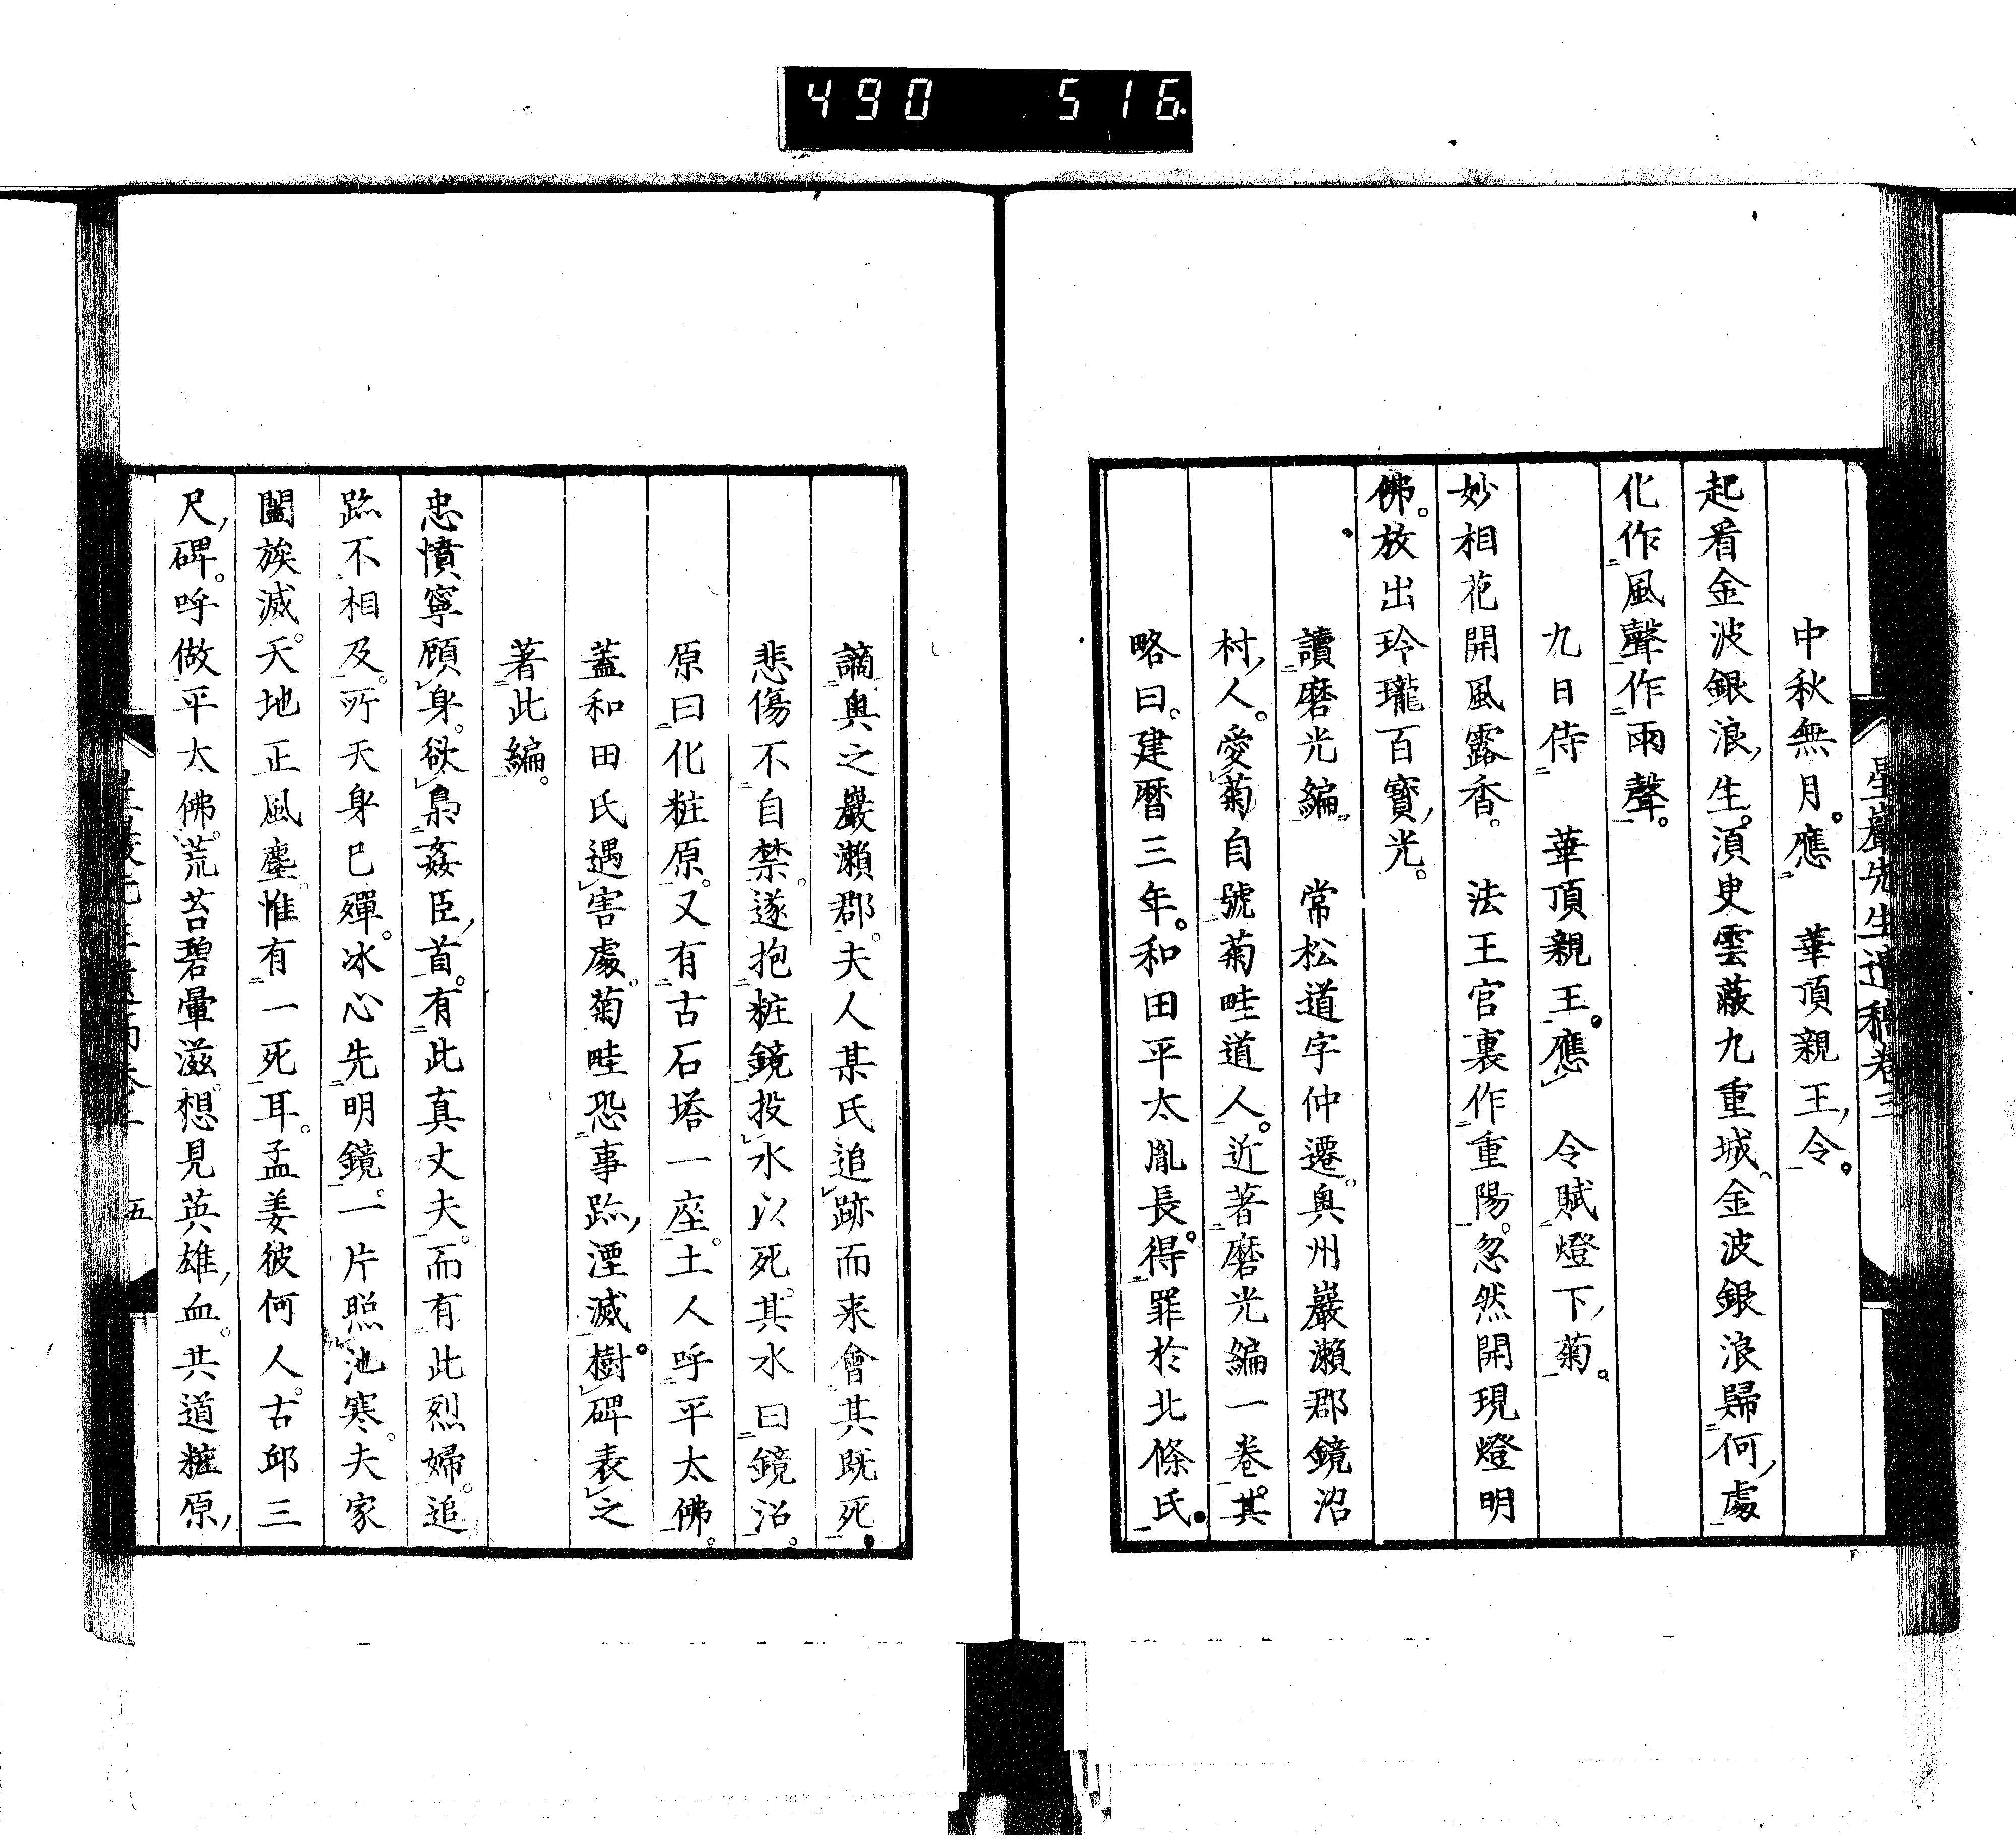 490 516
星巖先生遺稿卷三
中秋無月。應 華頂親王令。
起看金波銀浪生。須臾雲蔽九重城。金波銀浪歸何處
化作風聲作雨聲。
九日侍 華頂親王。應 令賦燈下菊。
妙相花開風露香。法王宮裏作重陽。忽然開現燈明
佛。放出玲瓏百寶光。
讀磨光編。常松道字仲遷。奧州巖瀨郡鏡沼
村人。愛菊自號菊畦道人。近著磨光編一卷。其
略曰。建曆三年。和田平太胤長。得罪於北條氏。
謫奧之巖瀨郡。夫人某氏追跡而来會其既死。
悲傷不自禁。遂抱粧鏡投水以死。其水曰鏡沼。
原曰化粧原。又有古石塔一座。土人呼平太佛。
蓋和田氏遇害處。菊畦恐事跡湮滅。樹碑表之
著此編。
忠憤寧顧身。欲梟姦臣首。有此真丈夫。而有此烈婦。追
跡不相及。所天身已殫。冰心先明鏡。一片照池寒。夫家
闔族滅。天地正風塵。惟有一死耳。孟姜彼何人。古邱三
尺碑。呼做平太佛。荒苔碧暈滋。想見英雄血。共道粧原
五